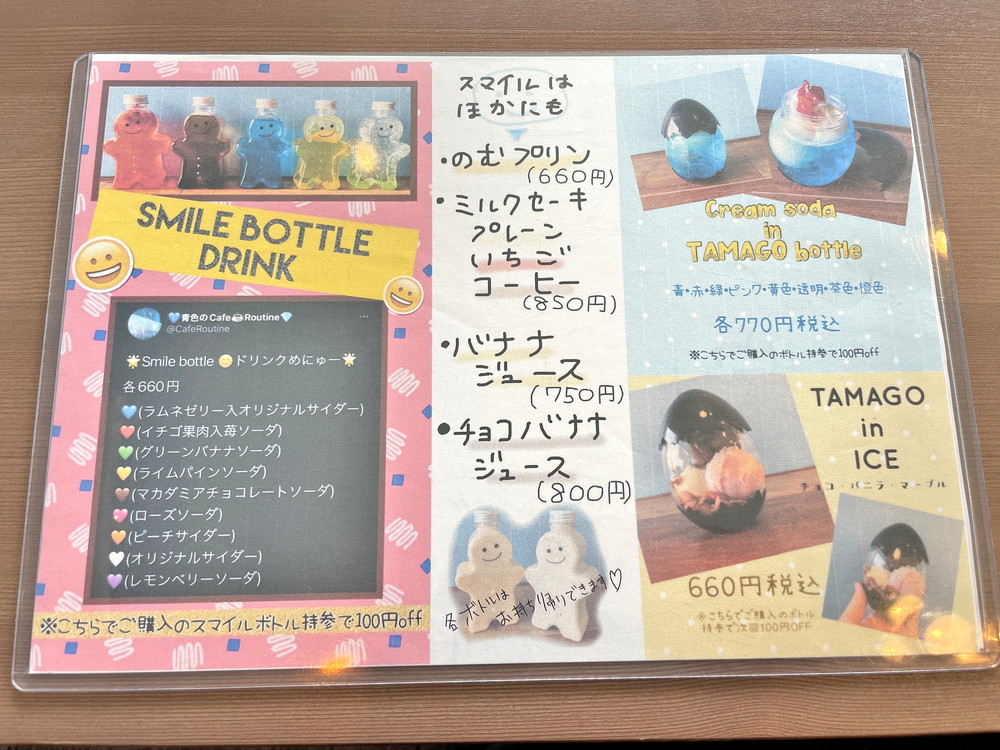 SMILE BOTTLE
DRINK
💙青色のCafe☕Routine💎
@CafeRoutine
🌟Smile bottle 😊ドリンクめにゅー🌟
各660円
💙(ラムネゼリー入オリジナルサイダー)
❤️(イチゴ果肉入苺ソーダ)
💚(グリーンバナナソーダ)
💛(ライムパインソーダ)
🤎(マカダミアチョコレートソーダ)
💖(ローズソーダ)
🧡(ピーチサイダー)
🤍(オリジナルサイダー)
💜(レモンベリーソーダ)
※こちらでご購入のスマイルボトル持参で100円off
スマイルは
ほかにも
・のむプリン
(660円)
・ミルクセーキ
プレーン
いちご
コーヒー
(850円)
・バナナ
ジュース
(750円)
・チョコバナナ
ジュース
(800円)
各ボトルは
お持ち帰りできます♡
Cream soda
in
TAMAGO bottle
青・赤・緑・ピンク・黄色・透明・茶色・橙色
各770円税込
※こちらでご購入のボトル持参で100円off
TAMAGO
in
ICE
チョコ・バニラ・マーブル
660円税込
※こちらでご購入のボトル
持参で次回100円OFF